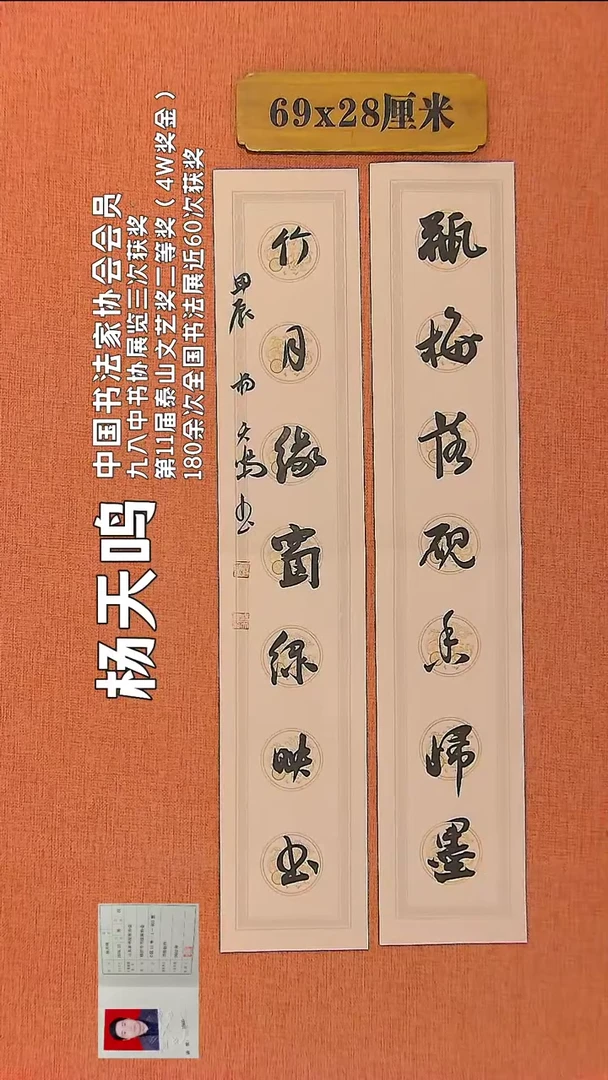 69x28厘米
瓶梅落砚香归墨
竹月缘窗绿映书
甲辰 杨天鸣书
杨天鸣
中国书法家协会会员
九八中书协展览三次获奖
第11届泰山文艺奖二等奖（4W奖金）
180余次全国书法展近60次获奖